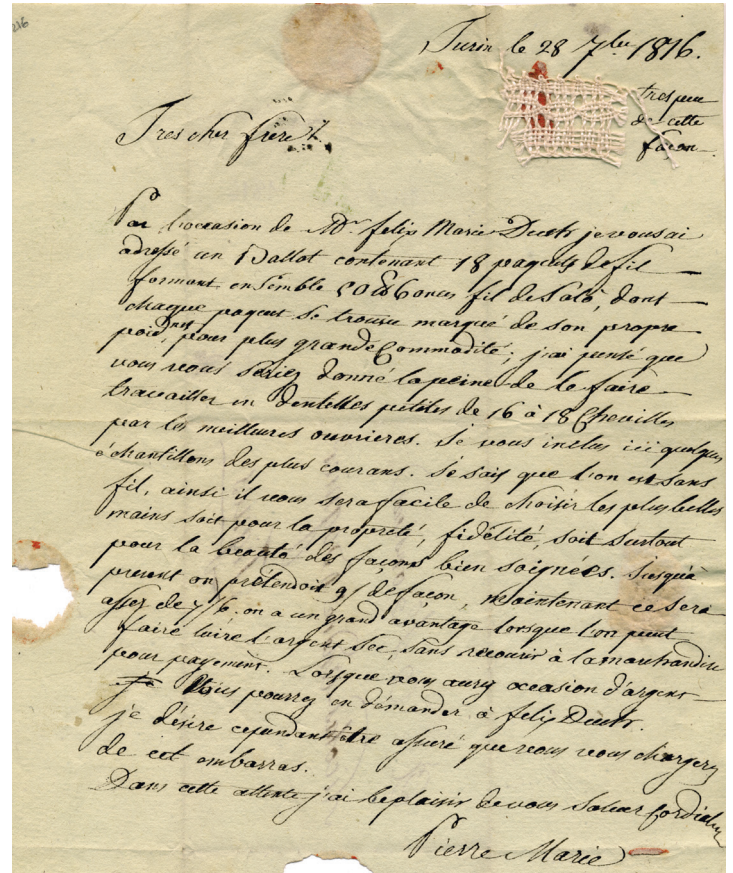 236
Turin le 28 7bre 1816.
tres peu
de cette
façon
Tres cher frere
Par l'occasion de Mr. felix Marie je vous ai
adressé un Ballot contenant 18 paquets de fil
formant ensemble onces fil de dont
chaque paquet se trouve marqué de son propre
poid, pour plus grande Commodité, j'ai pensé que
vous vous seriez donné la peine de le faire
travailler en Dentelles petites de 16 à 18 Chevilles
par les meilleures ouvrieres. Je vous inclus ici quelques
échantillons des plus courans. Je sais que l'on est sans
fil, ainsi il vous sera facile de choisir les plus belles
mains soit pour la propreté, fidélité, soit surtout
pour la beauté des façons bien soignées. Jusqu'à
present on prétendoit 9/ de façon, maintenant ce sera
assez de 7/6. on a un grand avantage lorsque l'on peut
faire luire l'argent sec, sans recourir à la marchandise
pour payement. Lorsque vous aurez occasion d'argent
Vous pourrez en démander à felix
je désire cependant être assuré que vous vous chargerez
de cet embarras.
Dans cette attente j'ai le plaisir de vous saluer
Pierre Marie